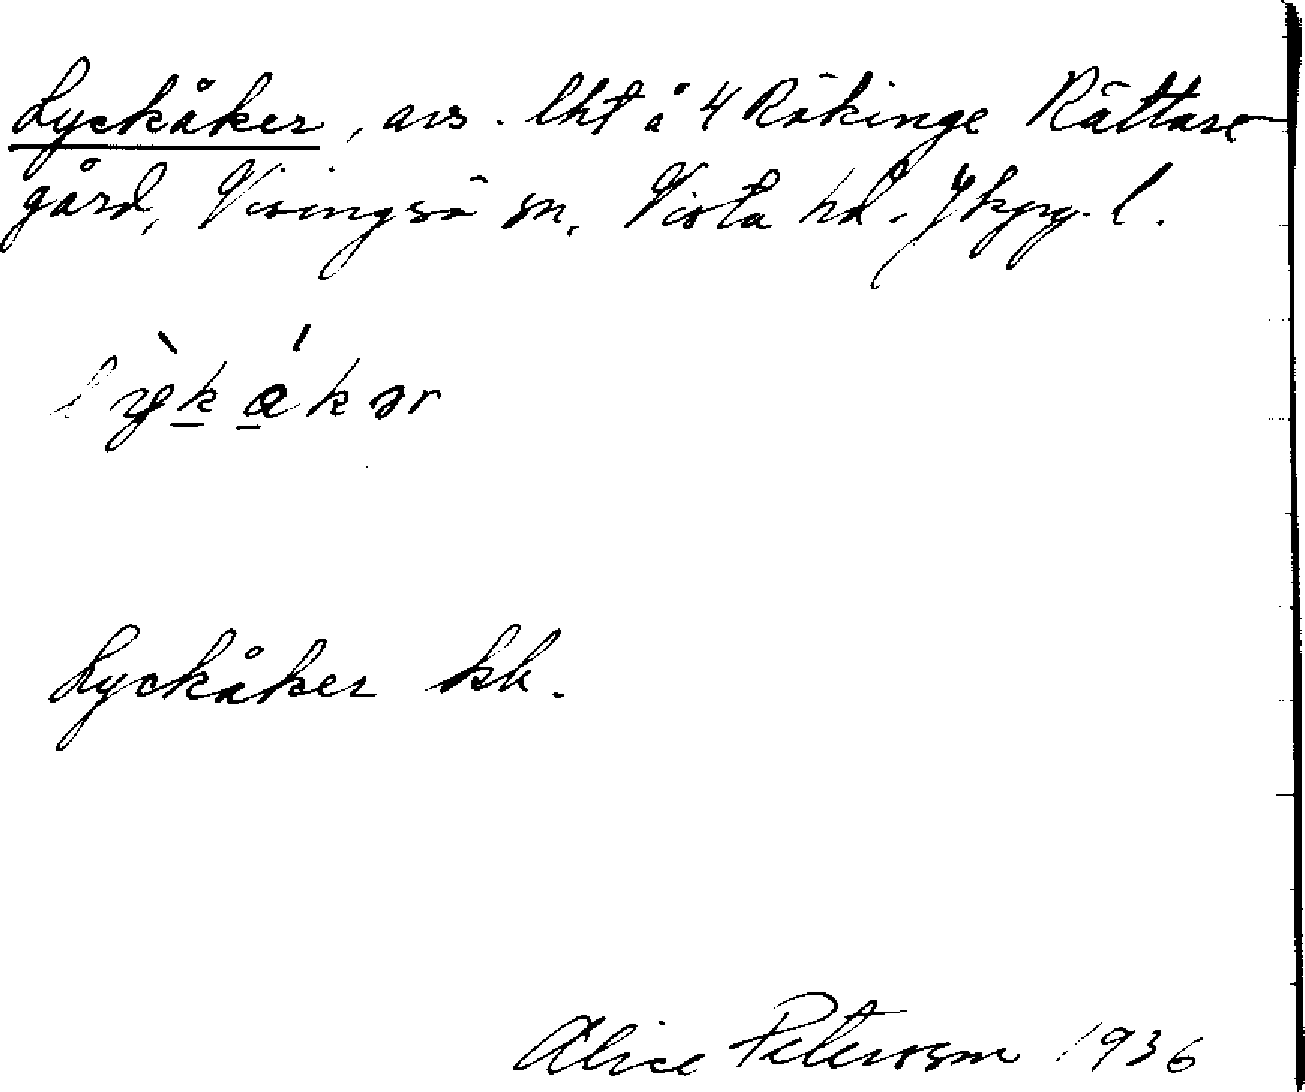 Lyckåker, avs. lht å 4 Rökinge Rättare
gård, Visingsö sn, Vista hd. Jkpg. l.
lỳkákər
Lyckåker kh.
Alice Peterson 1936